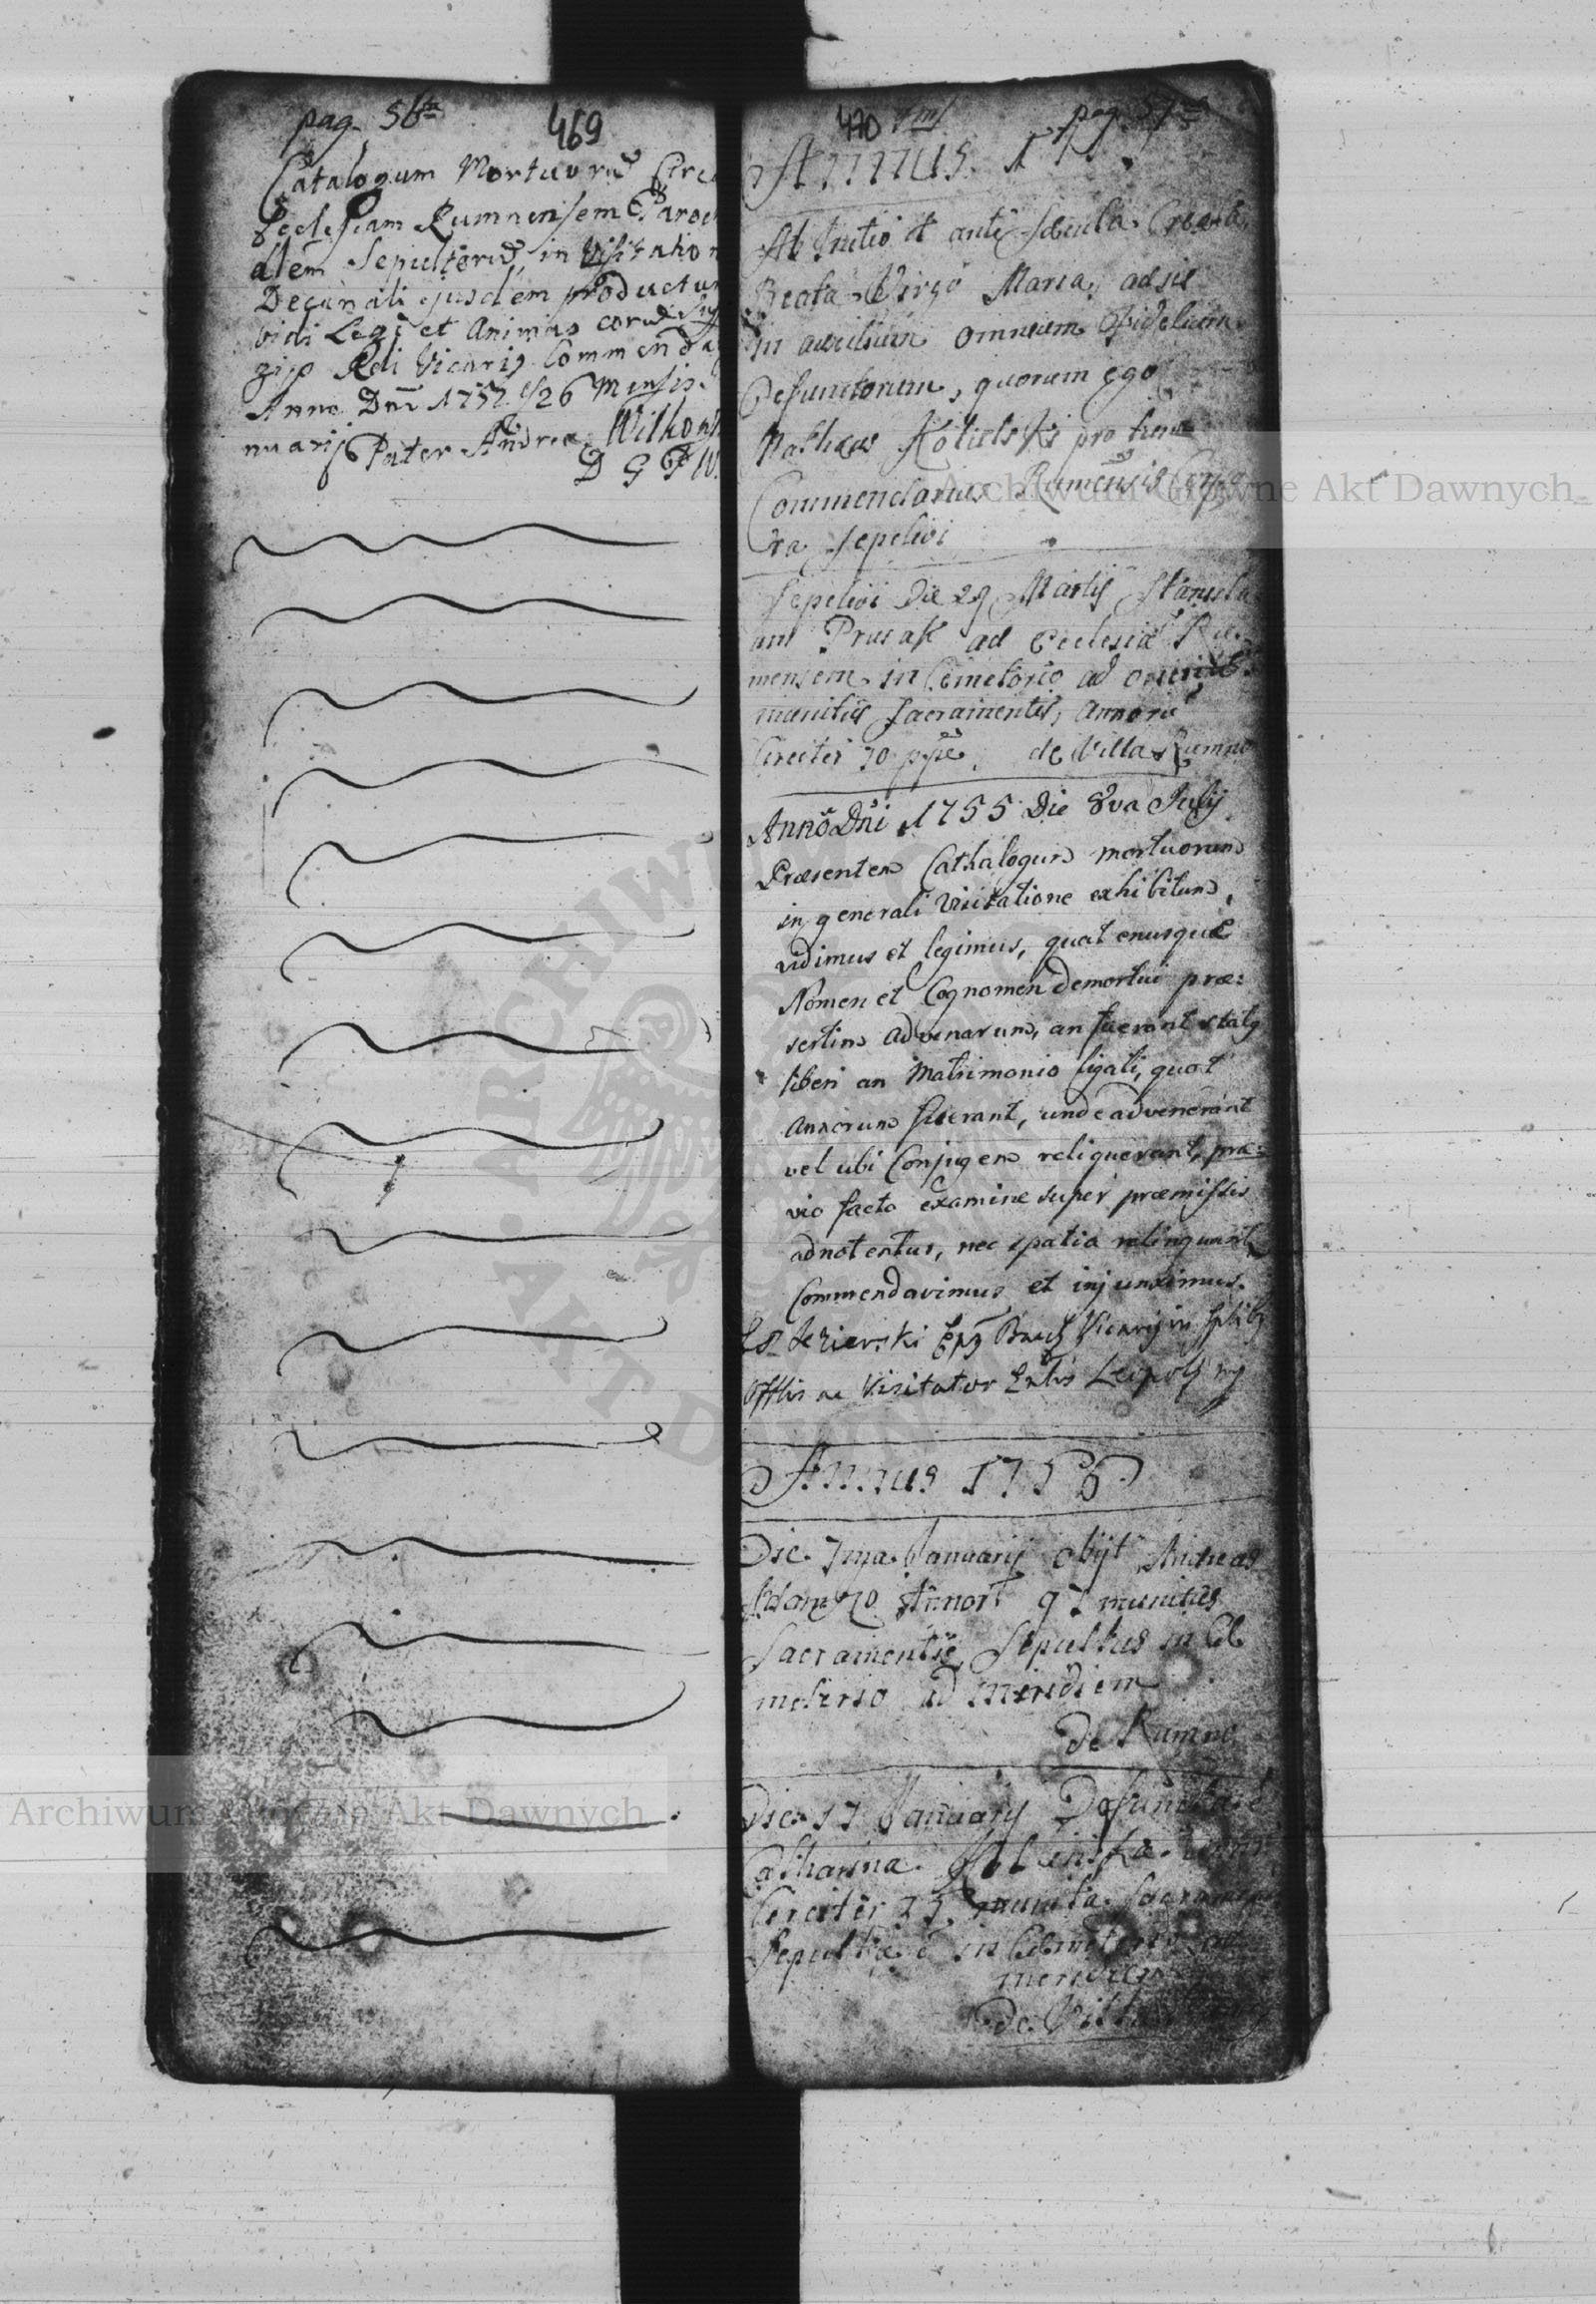 pag. 56ta
469
Catalogum Mortuorũ Circa
Ecclesiam Rumnensem Paroch
alem Sepultorũ, in Visitation
Decanali ejusdem productum
vidi Legi et Animas eorũ
Rdi Vicarij Commenda
Anno Dni 1752 26 Mensis
nuarij Pater Andreas Wilkons
D G
470
pag. 57ma
Annus 1
Ab Initio et ante sæcula Creata
Beata Virgo Maria, adsis
in auxilium omnium Fidelium
Defunctorum, quorum ego
Mathæus Kobielski pro tunc
Commendarius Rumensis Corpo
ra sepelivi
Sepelivi Die 29 Martij Stanisla
um Prusak ad Ecclesiã Ru
mensem in Cemeterio ad orientẽ
munitus Sacramentis, Annorũ
Circiter 70 de Villa Rumno
Anno Dni 1755 Die 8va Julij
Præsentem Cathalogum mortuorum
in generali Visitatione exhibitum,
vidimus et legimus, quatenusque
Nomen et Cognomen demortui præ:
sertim advenarum, an fuerant status
liberi an Matrimonio ligati, quot
Annorum fuerant, unde advenerant
vel ubi Conjugem reliquerant, præ:
vio facto examine super præmissis
adnotentur, nec spatia relinquant,
Commendavimus et injunximus.
Jezierski Vicarius in
Offlis ac Visitator
Annus 1755
Die Januarij obijt Andreas
Adam 70 Annorũ munitus
Sacramentis Sepultus in Ce
meterio ad meridiem
De Rumno
Die 17 Januarij Defuncta ẽ
Catharina
Circiter 25 munita Sacramen
Sepulta ẽ in Cemeterio ad
meridiem
De Villa
Archiwum Główne Akt Dawnych
Archiwum Główne Akt Dawnych
ARCHIWUM
AKT DAWNYCH